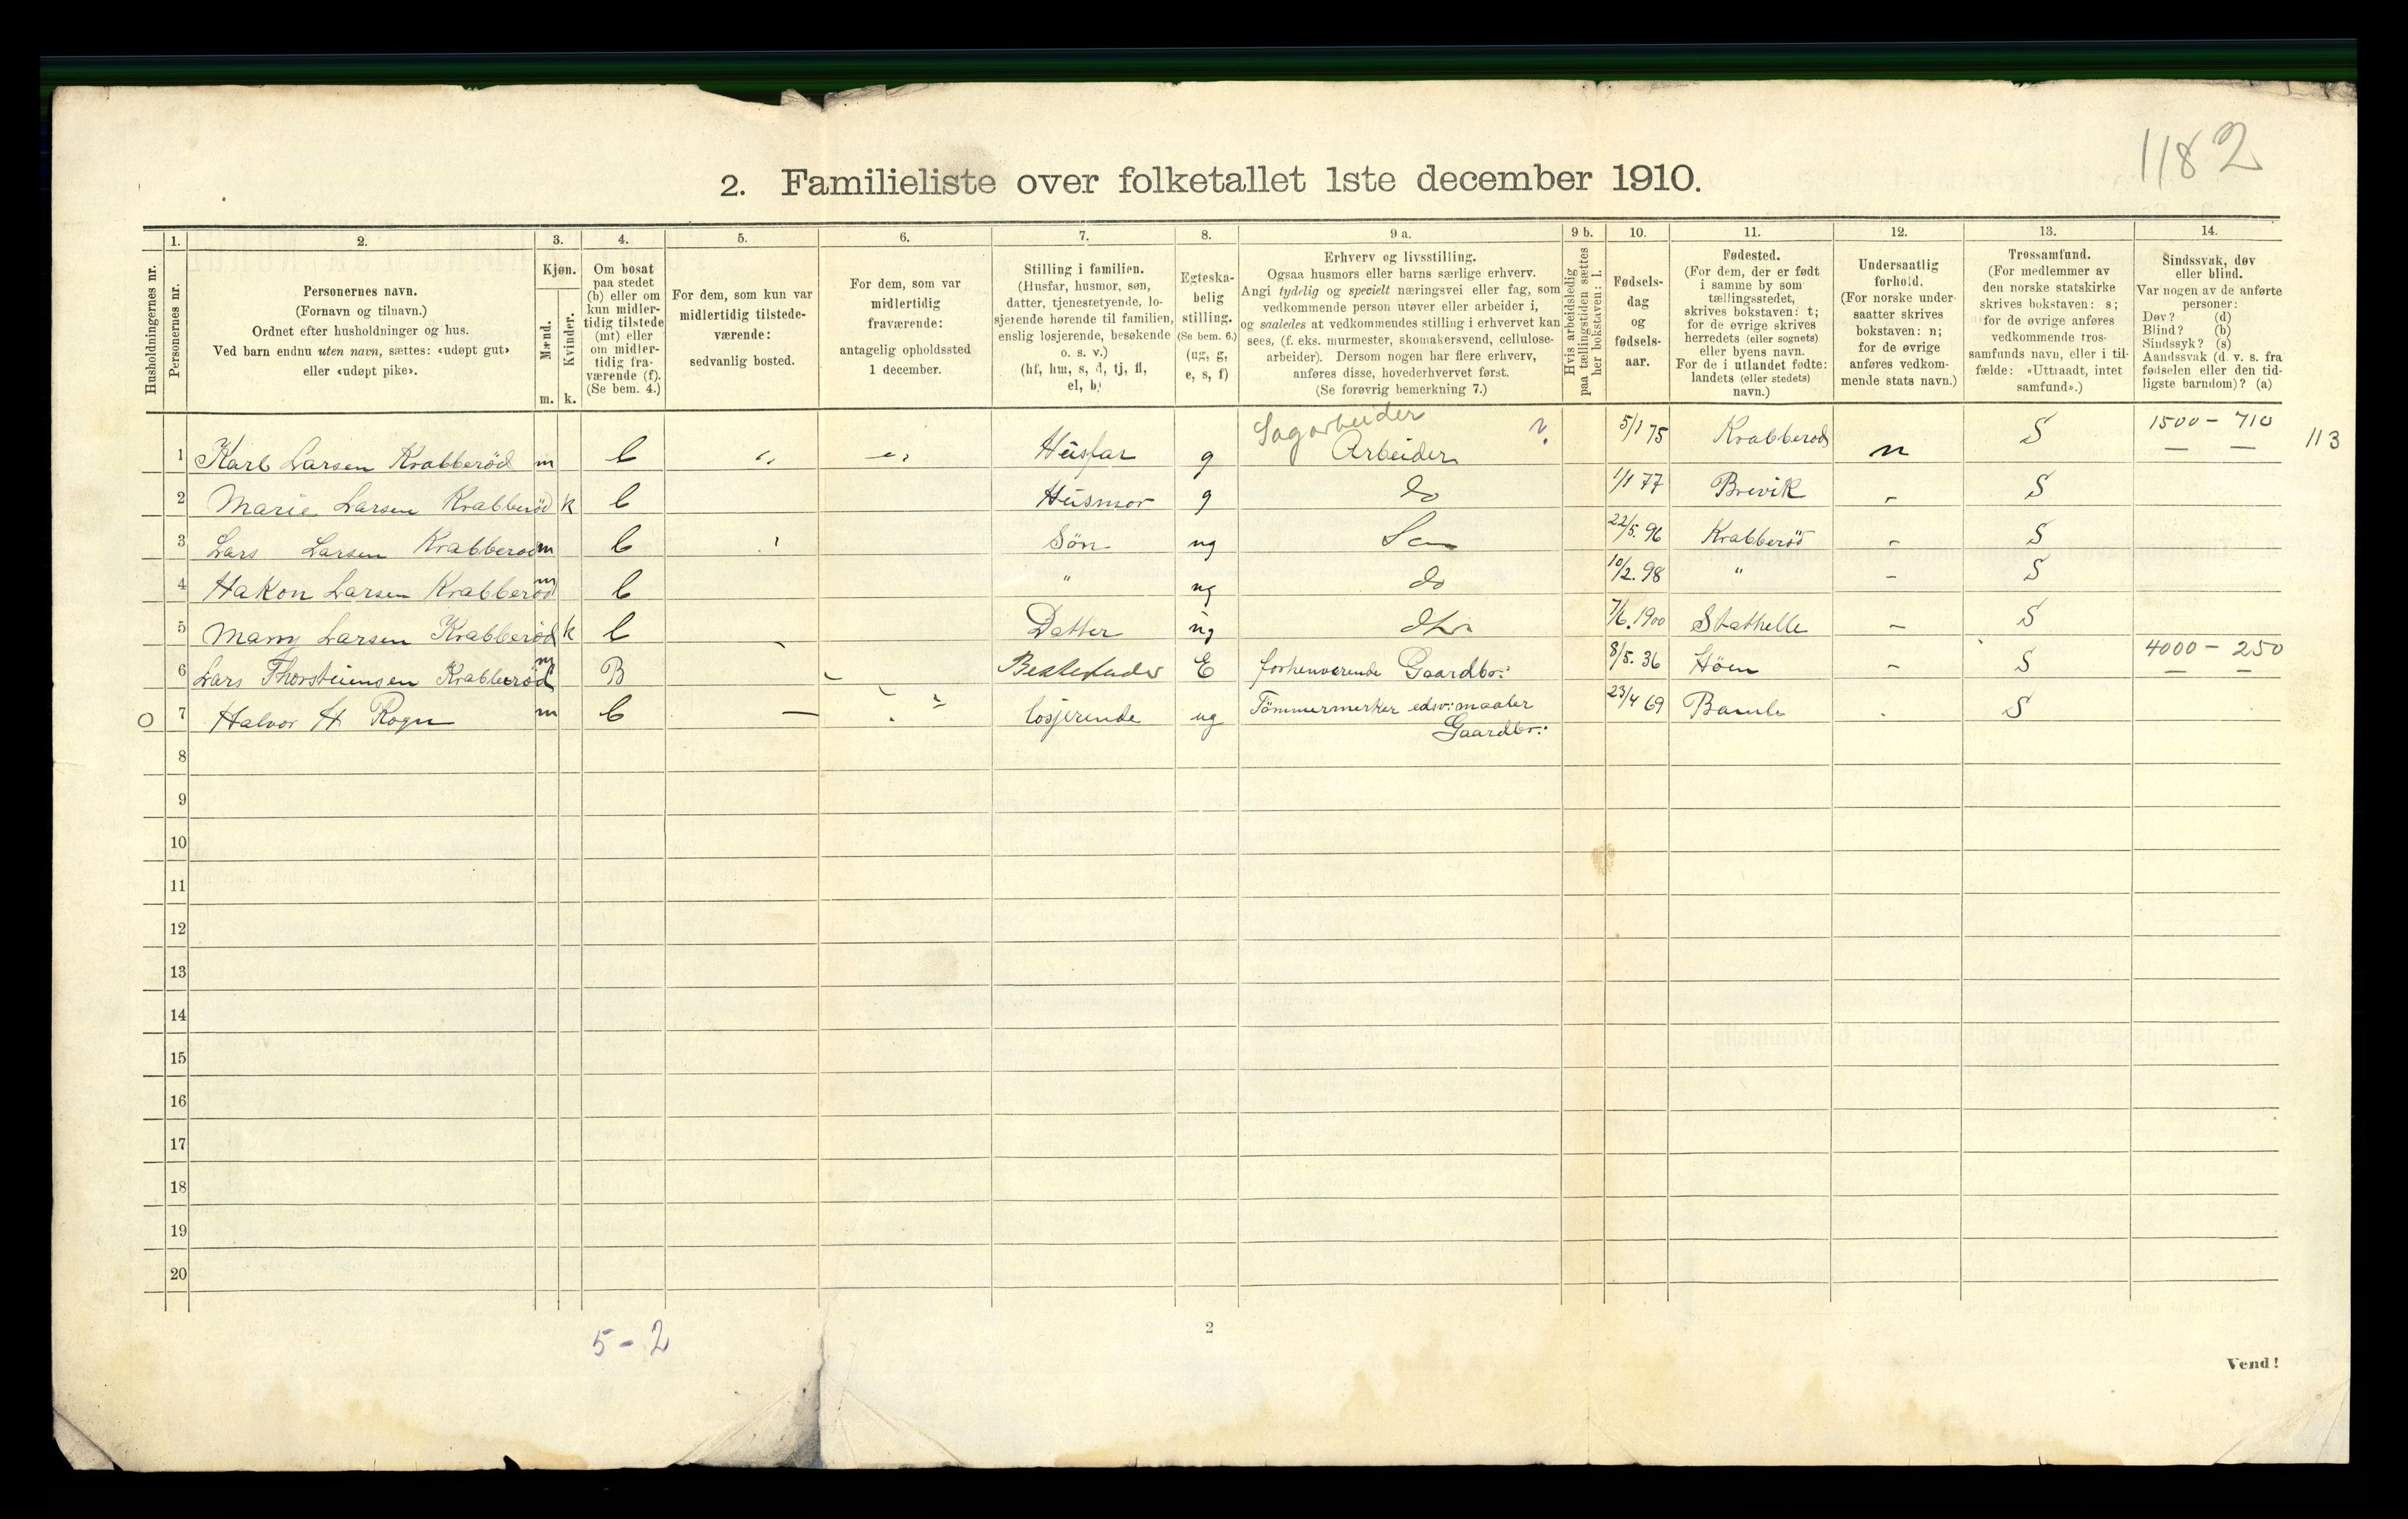 1182
2. Familieliste over folketallet 1ste december 1910.
Husholdningernes nr.
1. Personernes nr.
2. Personernes navn.
(Fornavn og tilnavn.)
Ordnet efter husholdninger og hus.
Ved barn endnu uten navn, sættes: «udøpt gut»
eller «udøpt pike».
3. Kjøn.
Mænd. m.
Kvinder. k.
4. Om bosat
paa stedet
(b) eller om
kun midler-
tidig tilstede
(mt) eller
om midler-
tidig fra-
værende (f).
(Se bem. 4.)
5. For dem, som kun var
midlertidig tilstede-
værende:
sedvanlig bosted.
6. For dem, som var
midlertidig
fraværende:
antagelig opholdssted
1 december.
7. Stilling i familien.
(Husfar, husmor, søn,
datter, tjenestetyende, lo-
sjerende hørende til familien,
enslig losjerende, besøkende
o. s. v.)
(hf, hm, s, d, tj, fl,
el, b)
8. Egteska-
belig
stilling.
(Se bem. 6.)
(ug, g,
e, s, f)
9 a. Erhverv og livsstilling.
Ogsaa husmors eller barns særlige erhverv.
Angi tydelig og specielt næringsvei eller fag, som
vedkommende person utøver eller arbeider i,
og saaledes at vedkommendes stilling i erhvervet kan
sees, (f. eks. murmester, skomakersvend, cellulose-
arbeider). Dersom nogen har flere erhverv,
anføres disse, hovederhvervet først.
(Se forøvrig bemerkning 7.)
9 b. Hvis arbeidsledig
paa tællingstiden sættes
her bokstaven: l.
10. Fødsels-
dag
og
fødsels-
aar.
11. Fødested.
(For dem, der er født
i samme by som
tællingsstedet,
skrives bokstaven: t;
for de øvrige skrives
herredets (eller sognets)
eller byens navn.
For de i utlandet fødte:
landets (eller stedets)
navn.)
12. Undersaatlig
forhold.
(For norske under-
saatter skrives
bokstaven: n;
for de øvrige
anføres vedkom-
mende stats navn.)
13. Trossamfund.
(For medlemmer av
den norske statskirke
skrives bokstaven: s;
for de øvrige anføres
vedkommende tros-
samfunds navn, eller i til-
fælde: «Uttraadt, intet
samfund».)
14. Sindssvak, døv
eller blind.
Var nogen av de anførte
personer:
Døv? (d)
Blind? (b)
Sindssyk? (s)
Aandssvak (d. v. s. fra
fødselen eller den tid-
ligste barndom)? (a)
Sagarbeider
1 Karl Larsen Krabberød m b Husfar g Arbeider 5/1 75 Krabberød n S 1500 - 710 113
2 Marie Larsen Krabberød k b Husmor g do 1/1 77 Brevik - S
3 Lars Larsen Krabberød m b Søn ug 22/5. 96 Krabberød - S
4 Hakon Larsen Krabberød m b " ug do 10/2. 98 " - S
5 Marry Larsen Krabberød k b Datter ug 7/6. 1900 Stathelle - S
6 Lars Thorsteinsen Krabberød m B Bestefader E forhenværende Gaardbr: 8/5. 36 Høen - S 4000 - 250
7 Halvor H Rogn m b — losjerende ug Tömmermerker edsv: maaler 23/4 69 Bamle S
Gaardbr:
8
9
10
11
12
13
14
15
16
17
18
19
20
5-2
2
Vend!